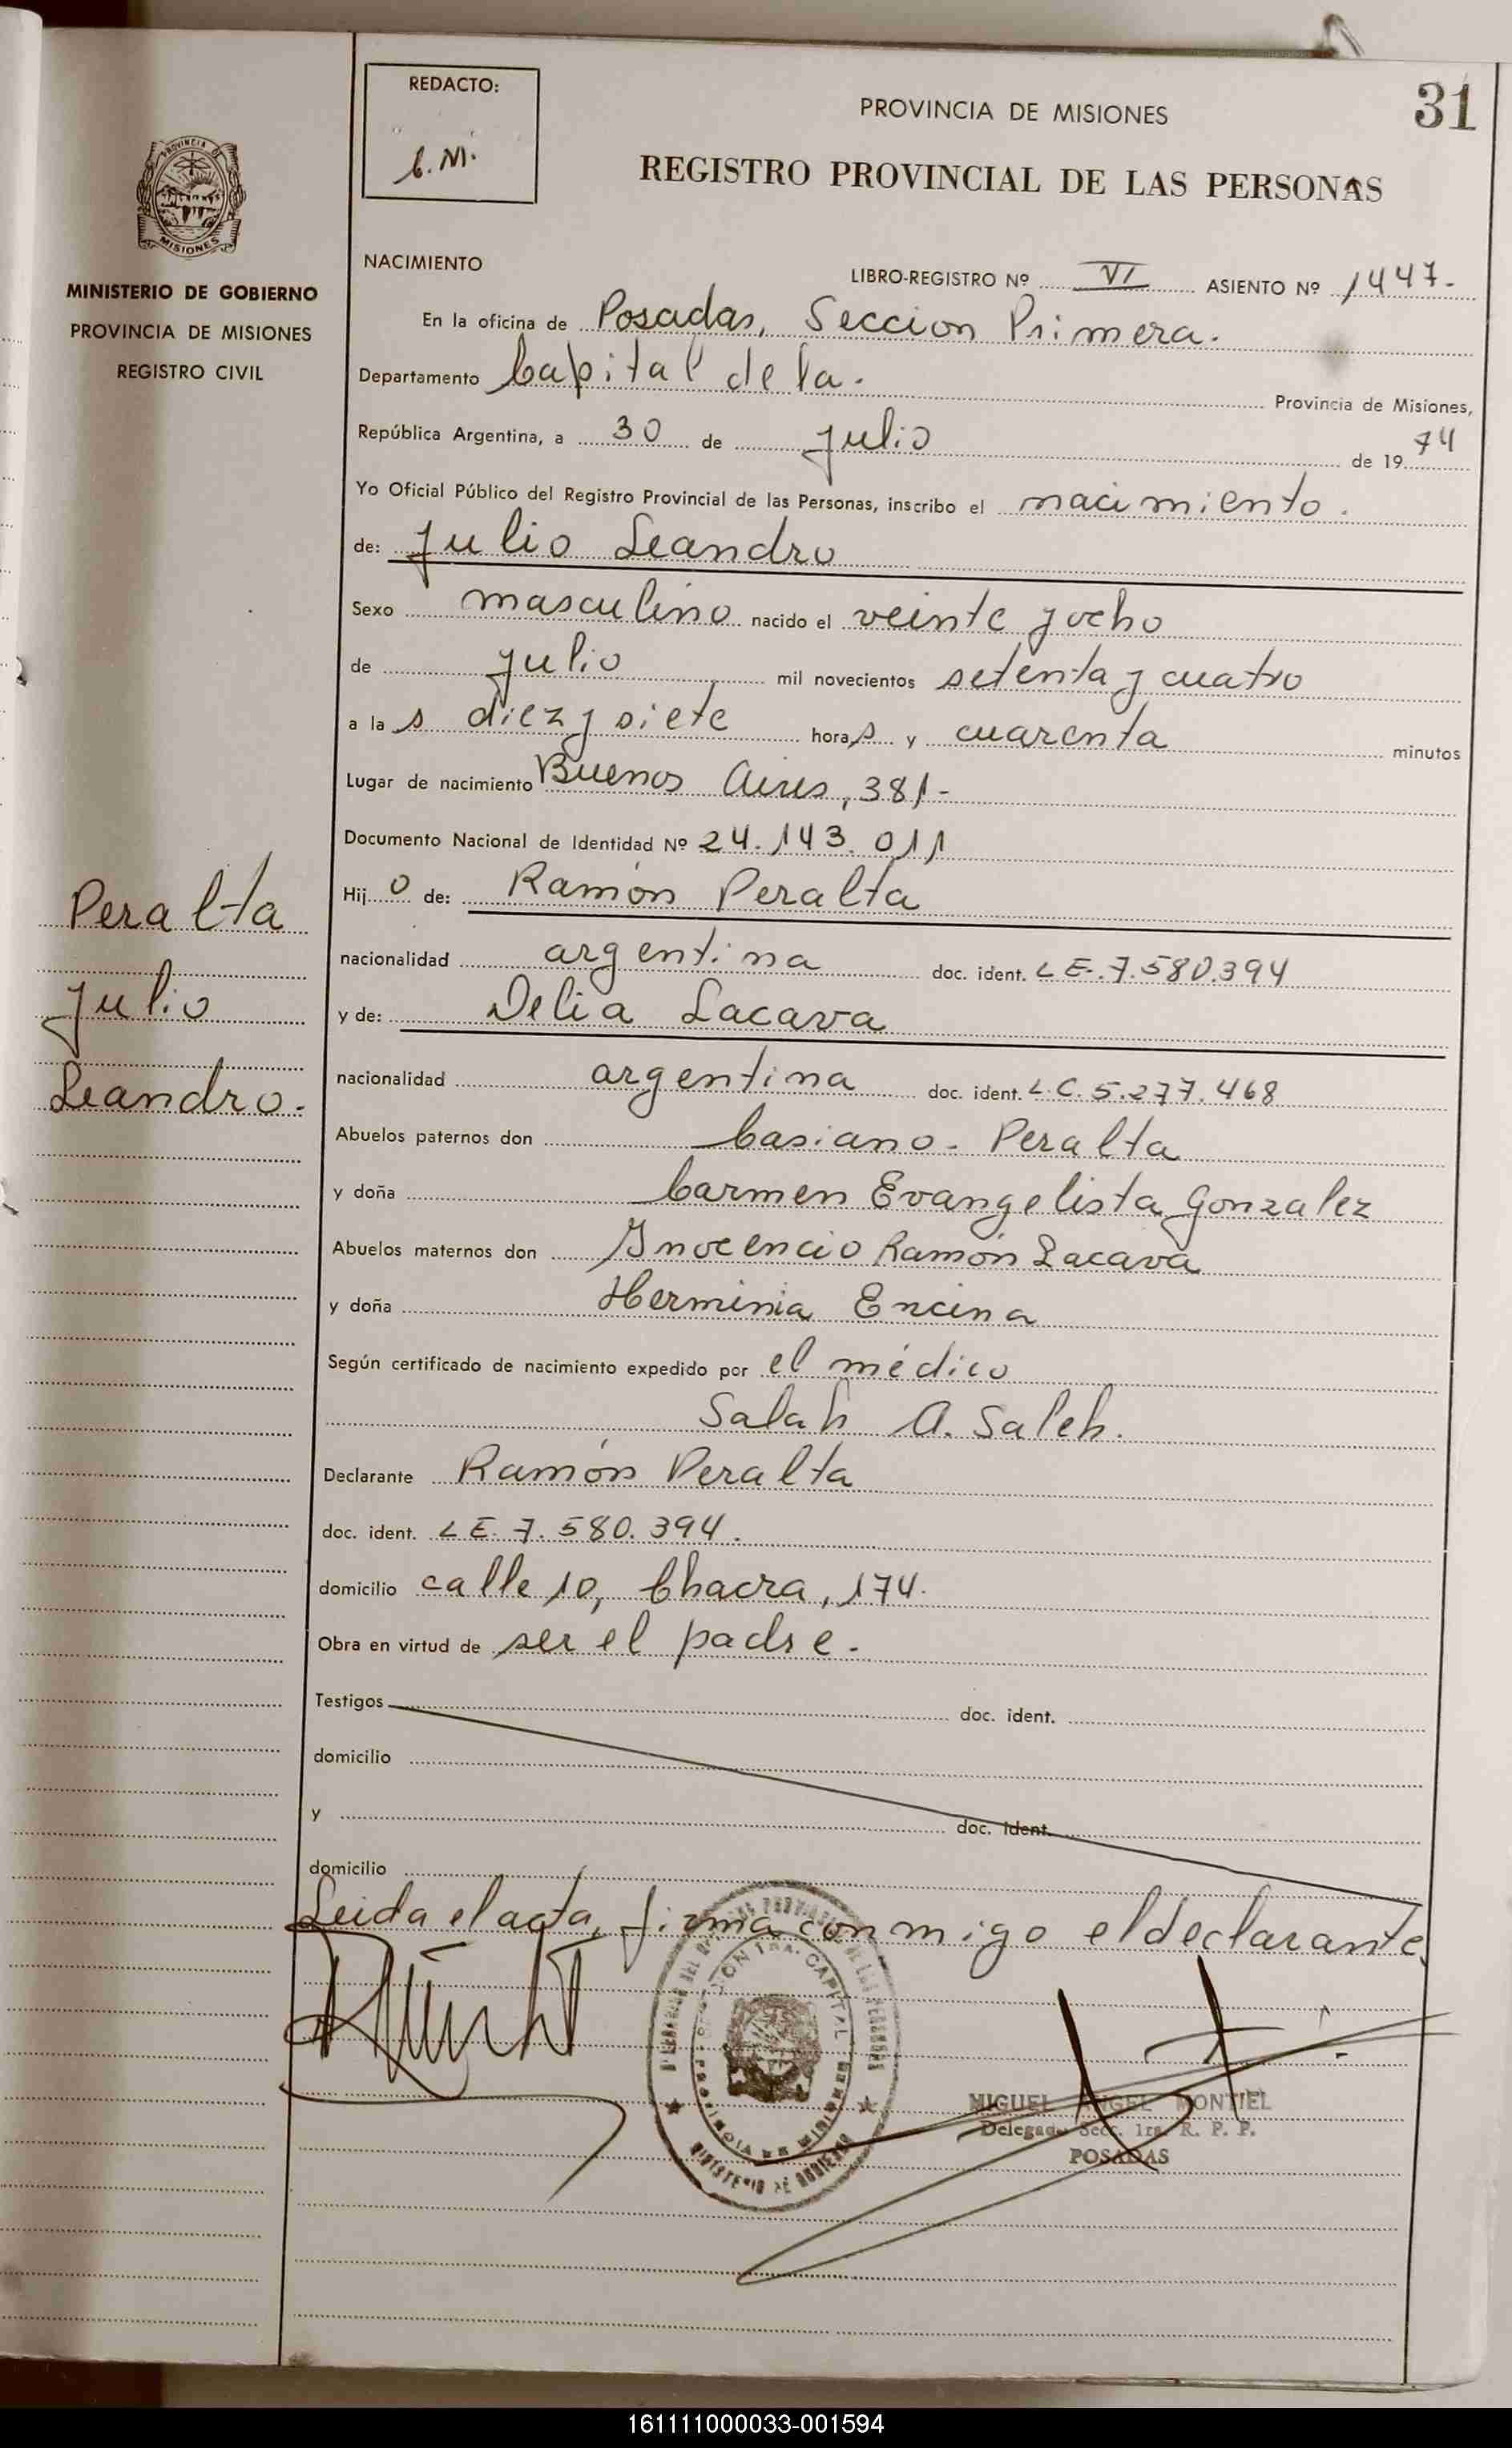 31
REDACTO:
C.M.
PROVINCIA DE MISIONES
REGISTRO PROVINCIAL DE LAS PERSONAS
PROVINCIA DE
MISIONES
MINISTERIO DE GOBIERNO
PROVINCIA DE MISIONES
REGISTRO CIVIL
NACIMIENTO LIBRO-REGISTRO Nº VI ASIENTO Nº 1447.-
En la oficina de Posadas, Seccion Primera.
Departamento Capital de la. Provincia de Misiones,
República Argentina, a 30 de Julio de 1974
Yo Oficial Público del Registro Provincial de las Personas, inscribo el nacimiento.
de: Julio Leandro
Sexo masculino nacido el veinte y ocho
de julio mil novecientos setenta y cuatro
a las diez y siete horas y cuarenta minutos
Lugar de nacimiento Buenos Aires, 381-
Documento Nacional de Identidad Nº 24.143.011
Hijo de: Ramón Peralta
nacionalidad argentina doc. ident. L.E. 7.580.394
y de: Delia Lacava
nacionalidad argentina doc. ident. L.C. 5.277.468
Abuelos paternos don Casiano Peralta
y doña Carmen Evangelista Gonzalez
Abuelos maternos don Inocencio Ramón Lacava
y doña Herminia Encina
Según certificado de nacimiento expedido por el médico
Salah A. Saleh.
Declarante Ramón Peralta
doc. ident. L.E. 7.580.394.
domicilio calle 10, Chacra, 174.
Obra en virtud de ser el padre.
Testigos doc. ident.
domicilio
y doc. ident.
domicilio
Leida el acta, firma conmigo el declarante.
Peralta
Julio
Leandro.-
CAPITAL
PROVINCIA DE MISIONES
MINISTERIO DE GOBIERNO
MIGUEL ANGEL MONTIEL
Delegado Secc. 1ra. R. P. P.
POSADAS
161111000033-001594